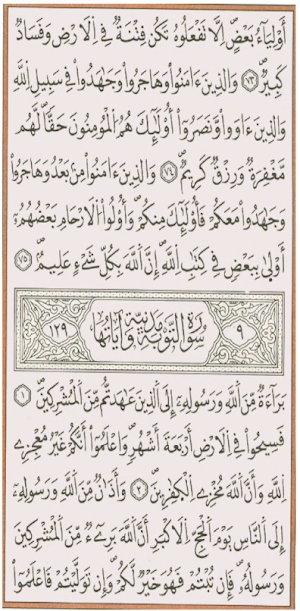 أَوْلِيَآءُ بَعْضٍ إِلَّا تَفْعَلُوهُ تَكُن فِتْنَةٌ فِى اِلَارْضِ وَفَسَادٌ
كَبِيرٌ ٧٣ وَالذِينَ ءَامَنُوا وَهَاجَرُوا وَجَٰهَدُوا فِى سَبِيلِ اِللَّهِ
وَالذِينَ ءَاوَوا وَّنَصَرُوٓا أُوْلَٰٓئِكَ هُمُ الْمُومِنُونَ حَقّٗا لَّهُم
مَّغْفِرَةٌ وَرِزْقٌ كَرِيمٌ ٧٤ وَالذِينَ ءَامَنُوا مِنۢ بَعْدُ وَهَاجَرُوا
وَجَٰهَدُوا مَعَكُمْ فَأُوْلَٰٓئِكَ مِنكُمْ وَأُوْلُوا اُلَارْحَامِ بَعْضُهُمُۥٓ
أَوْلَىٰ بِبَعْضٍ فِى كِتَٰبِ اِللَّهِ إِنَّ اَللَّهَ بِكُلِّ شَىْءٍ عَلِيمٌ ٧٥
٩ سُورَةُ التَّوْبَةِ مَدَنِيَّةٌ وَآيَاتُهَا ١٢٩
بَرَآءَةٌ مِّنَ اَللَّهِ وَرَسُولِهِۦٓ إِلَى اَلذِينَ عَٰهَدتُّم مِّنَ اَلْمُشْرِكِينَ ١
فَسِيحُوا فِى اِلَارْضِ أَرْبَعَةَ أَشْهُرٍ وَاعْلَمُوٓا أَنَّكُمْ غَيْرُ مُعْجِزِى
اِللَّهِ وَأَنَّ اَللَّهَ مُخْزِى اِلْكٰفِرِينَ ٢ وَأَذَٰنٌ مِّنَ اَللَّهِ وَرَسُولِهِۦٓ
إِلَى اَلنَّاسِ يَوْمَ اَلْحَجِّ اِلَاكْبَرِ أَنَّ اَللَّهَ بَرِىٓءٌ مِّنَ اَلْمُشْرِكِينَ
وَرَسُولُهُۥ فَإِن تُبْتُمْ فَهُوَ خَيْرٌ لَّكُمْ وَإِن تَوَلَّيْتُمْ فَاعْلَمُوٓا